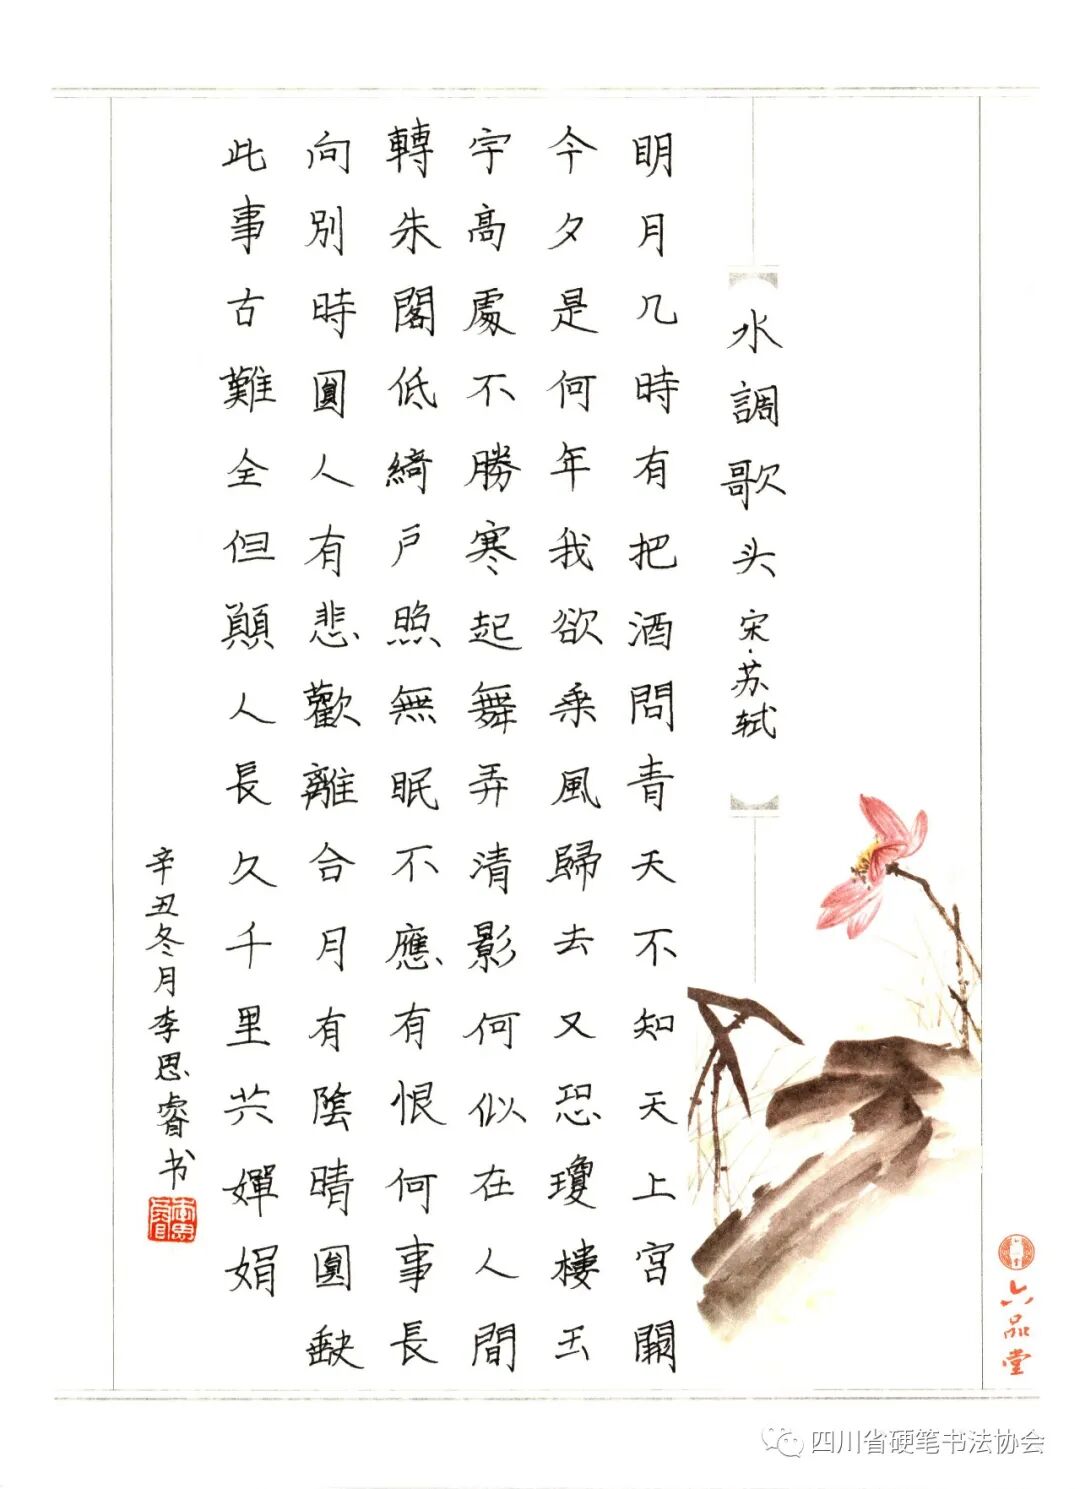 水調歌头 宋·苏轼
明月几時有把酒問青天不知天上宮闕
今夕是何年我欲乘風歸去又恐瓊樓玉
宇高處不勝寒起舞弄清影何似在人間
轉朱閣低綺戶照無眠不應有恨何事長
向別時圓人有悲歡離合月有陰晴圓缺
此事古難全但願人長久千里共嬋娟
辛丑冬月李思睿书
六品堂
四川省硬笔书法协会